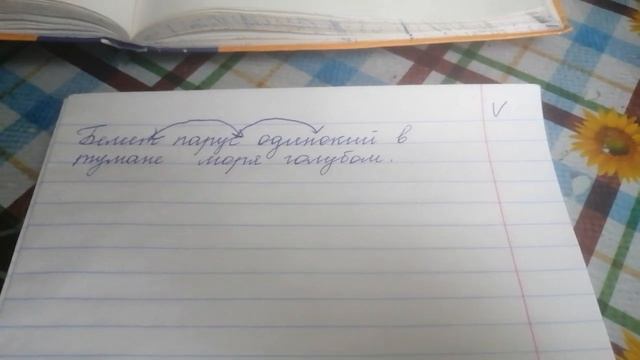 V
Белиет парус одинокий в
тумане моря голубом.